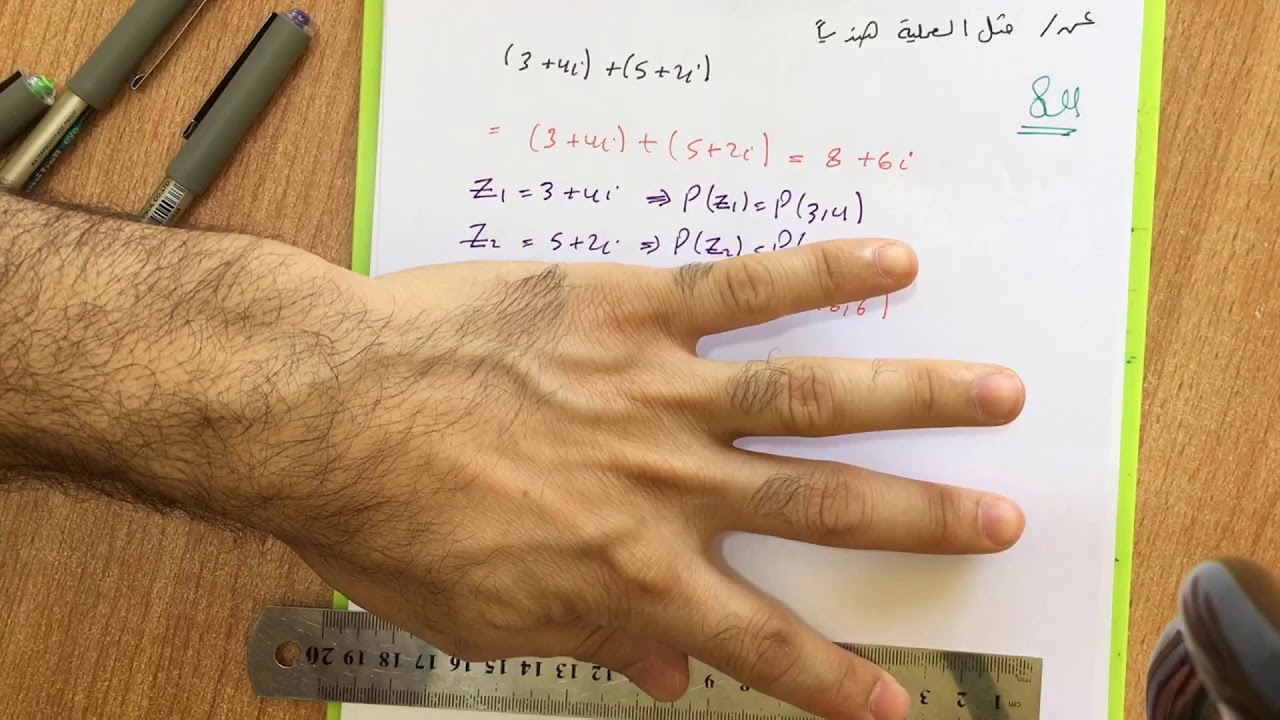 س/ مثل العملية هندسياً
(3+4i)+(5+2i)
الحل
= (3+4i)+(5+2i) = 8+6i
Z₁ = 3+4i ⇒ P(Z₁) = P(3,4)
Z₂ = 5+2i ⇒ P(Z₂) = P(
,6)
20 19 18 17 16 15 14 13 12 9 3 2 1 cm